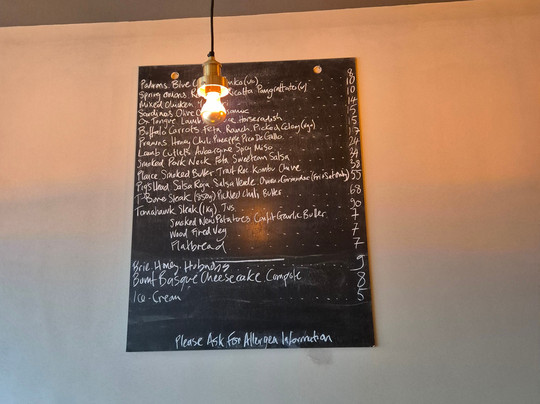 Padrons. Blue (v) 8
Spring onions. Ricotta Pangrattato (v) 10
Mixed Chicken. 14
Sardines Olive
Ox Tongue Lamb Horseradish 15
Buffalo Carrots Feta Ranch. Pickled Celery (veg)
Prawns Honey Chili Pineapple Pico De Gallo. 24
Lamb Cutlets Aubergine Spicy Miso
Smoked Pork Neck Feta Sweetcorn Salsa
Plaice Smoked Butter Trout Roe. Kombu Chive 38
Pigs Head Salsa Roja Salsa Verde 55
T-Bone Steak (750g) Pickled Chili Butter 68
Tomahawk Steak (1kg) Jus 90
Smoked New Potatoes Confit Garlic Butter 7
Wood Fired Veg 7
Flatbread 7
Brie. Honey. 9
Burnt Basque Cheesecake. Compote 8
Ice-Cream 5
Please Ask For Allergen Information